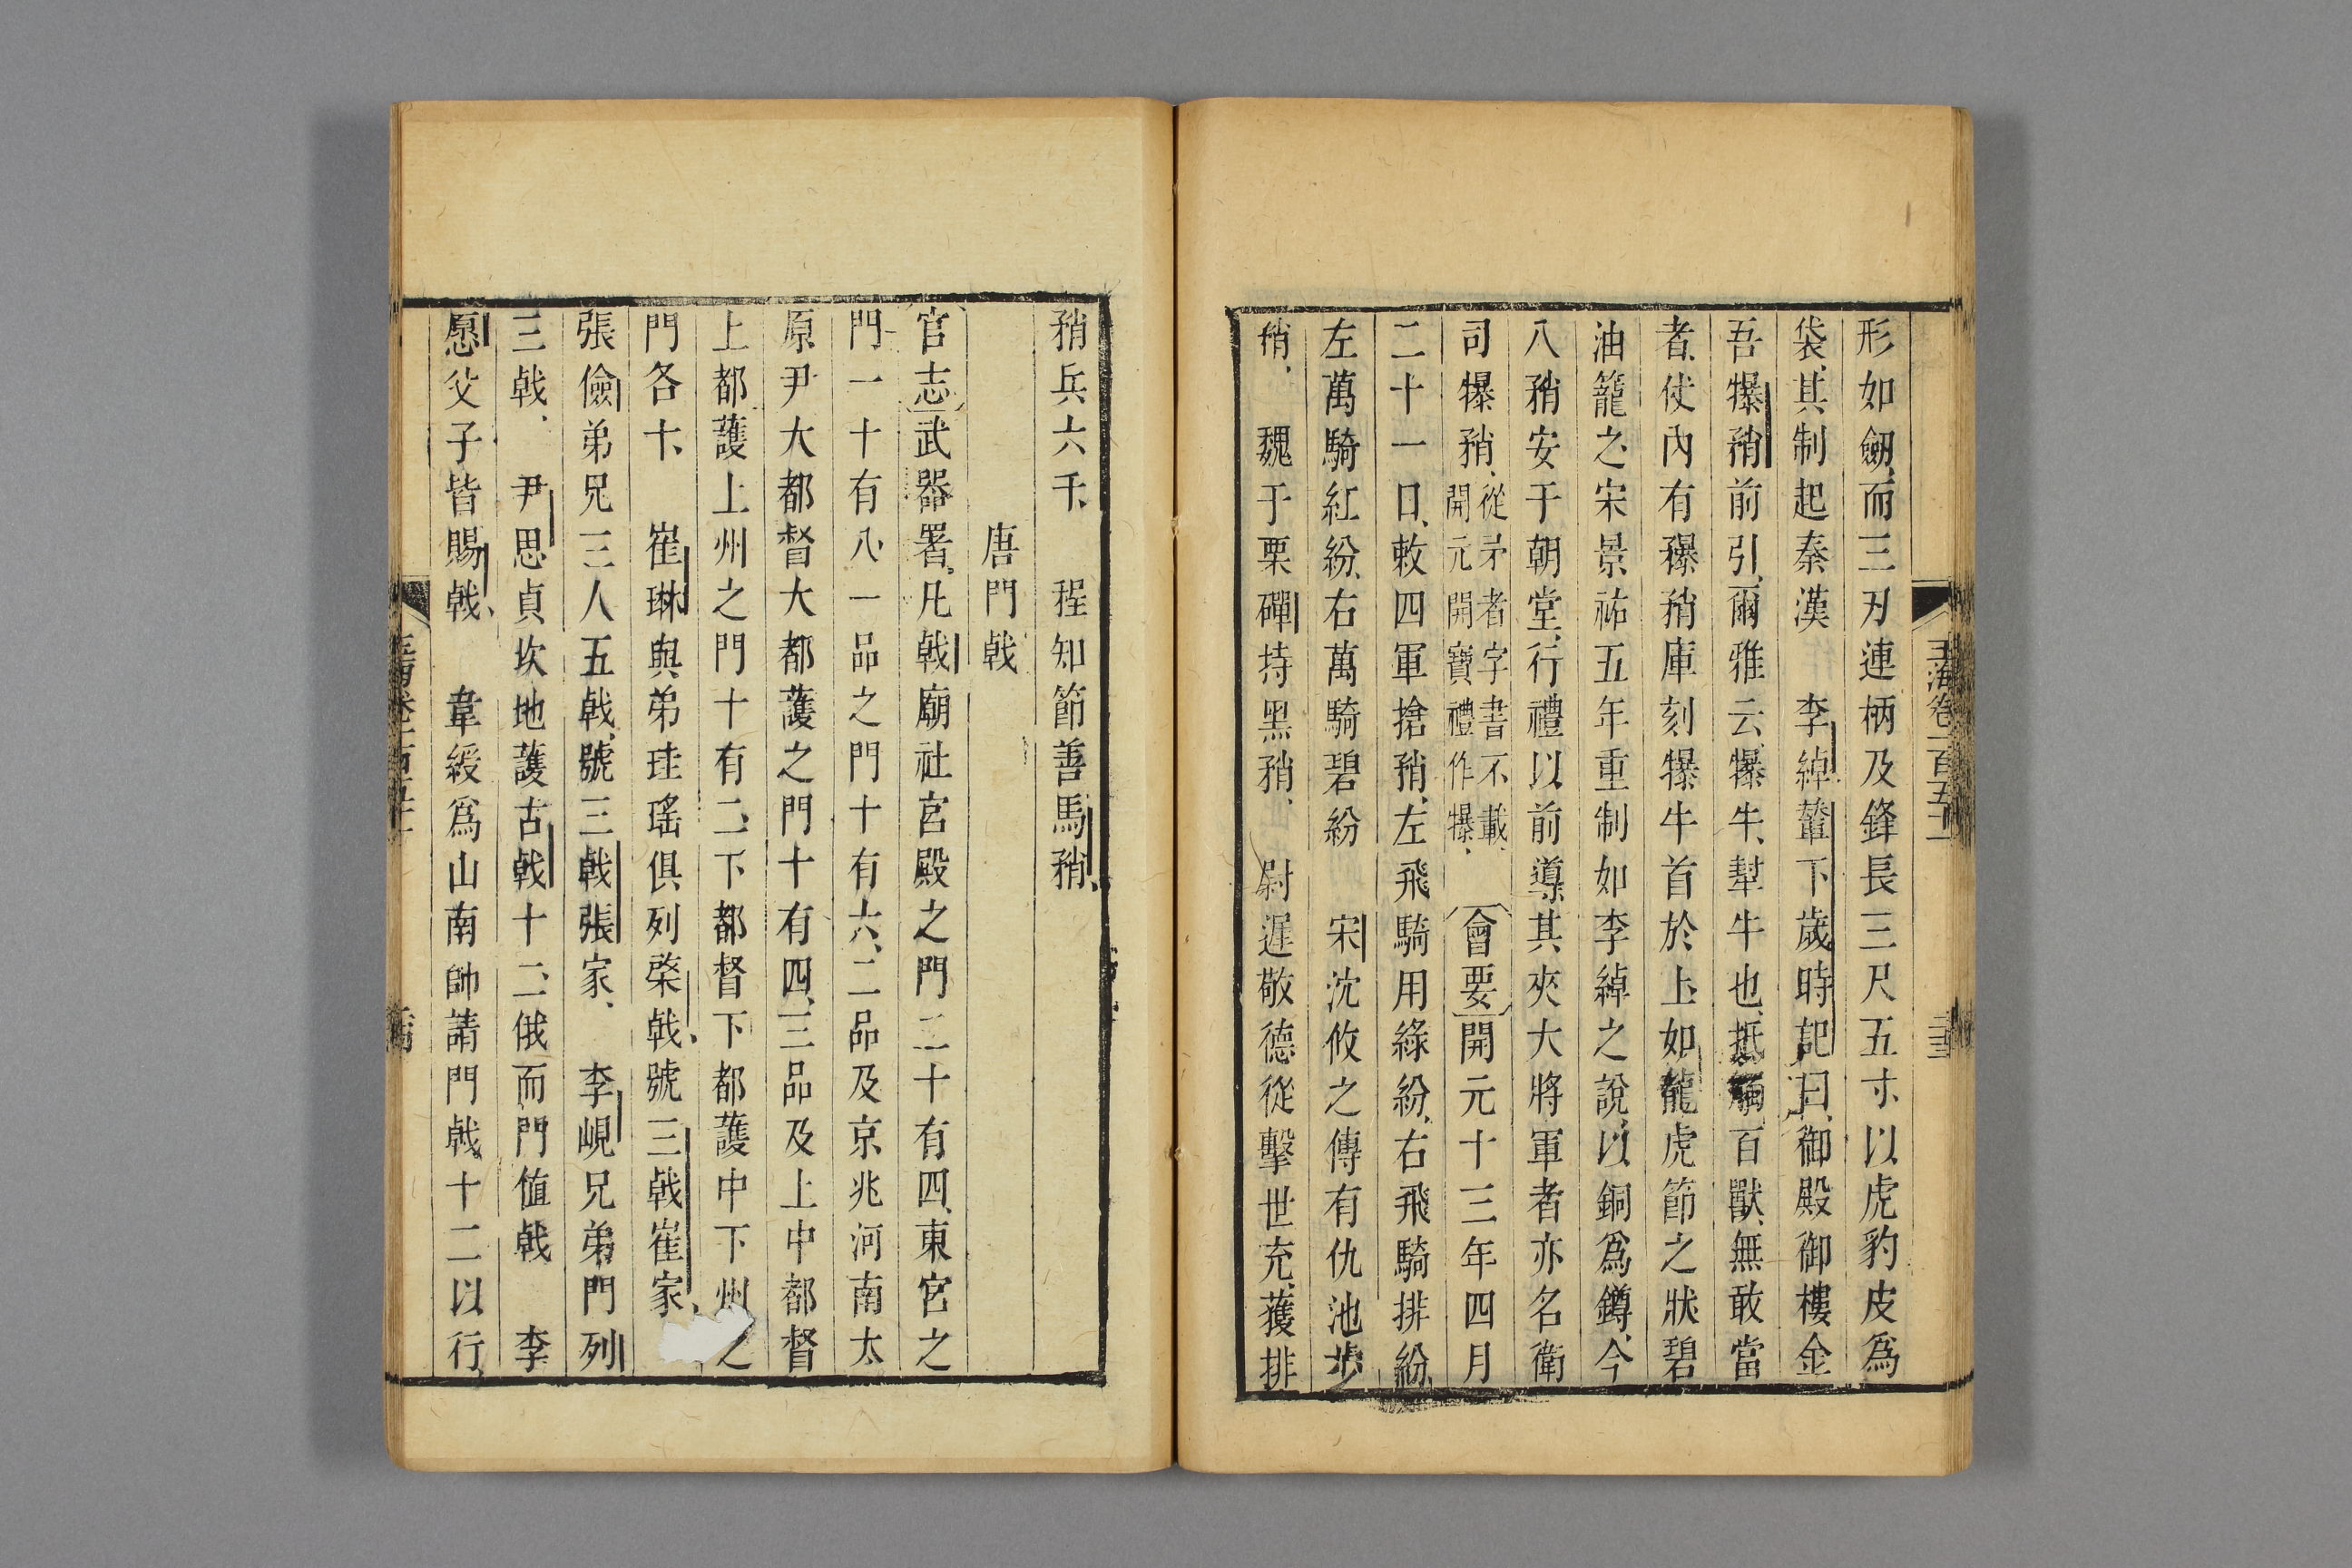 玉海卷一百五十一
形如劒而三刃連柄及鋒長三尺五寸以虎豹皮爲
袋其制起秦漢　李綽輦下歲時記曰御殿御樓金
吾犦矟前引爾雅云犦牛犎牛也抵觸百獸無敢當
者仗內有䂍矟庫刻犦牛首於上如龍虎節之狀碧
油籠之宋景祐五年重制如李綽之說以銅爲鐏今
八矟安于朝堂行禮以前導其夾大將軍者亦名衛
司犦矟從矛者字書不載開元開寶禮作犦　會要開元十三年四月
二十一日敕四軍搶矟左飛騎用綠紛右飛騎排紛
左萬騎紅紛右萬騎碧紛　宋沈攸之傳有仇池步
矟　魏于栗磾持黑矟　尉遲敬德從擊世充獲排
矟兵六千　程知節善馬矟
唐門戟
官志武器署凡戟廟社宮殿之門二十有四東宮之
門一十有八一品之門十有六二品及京兆河南太
原尹大都督大都護之門十有四三品及上中都督
上都護上州之門十有二下都督下都護中下州之
門各十　崔琳與弟珪瑤俱列棨戟號三戟崔家
張儉弟兄三人五戟號三戟張家　李峴兄弟門列
三戟　尹思貞坎地護古戟十二俄而門值戟　李
愿父子皆賜戟　韋綬爲山南帥請門戟十二以行